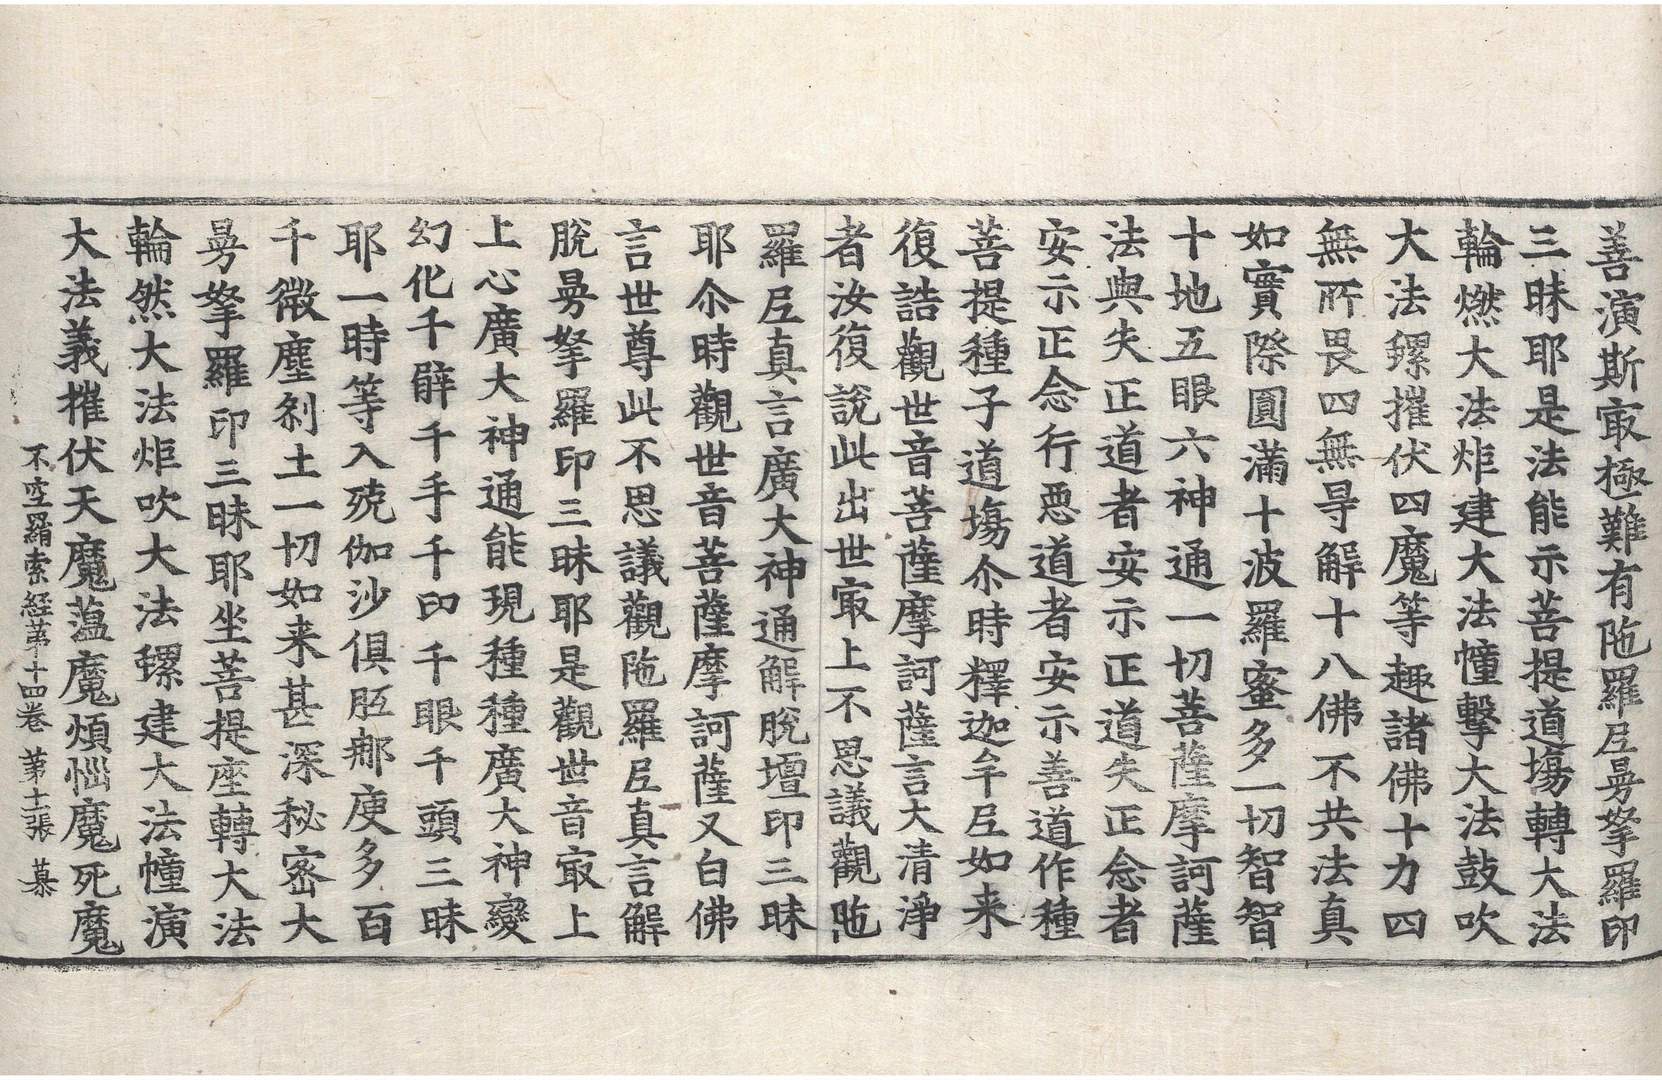 善演斯㝡極難有陁羅尼曼拏羅印
三昧耶是法能示菩提道場轉大法
輪燃大法炬建大法幢擊大法鼓吹
大法䗍摧伏四魔等趣諸佛十力四
無所畏四無㝵解十八佛不共法真
如實際圓滿十波羅蜜多一切智智
十地五眼六神通一切菩薩摩訶薩
法與失正道者安示正道失正念者
安示正念行惡道者安示善道作種
菩提種子道場尒時釋迦牟尼如来
復誥觀世音菩薩摩訶薩言大清淨
者汝復說此出世㝡上不思議觀陁
羅尼真言廣大神通解脫壇印三昧
耶尒時觀世音菩薩摩訶薩又白佛
言世尊此不思議觀陁羅尼真言解
脫曼拏羅印三昧耶是觀世音㝡上
上心廣大神通能現種種廣大神變
幻化千臂千手千印千眼千頭三昧
耶一時等入殑伽沙俱胝那庾多百
千微塵剎土一切如来甚深秘密大
曼拏羅印三昧耶坐菩提座轉大法
輪然大法炬吹大法䗍建大法幢演
大法義摧伏天魔蘊魔煩惱魔死魔
不空羂索経第十四卷 第十二張 慕